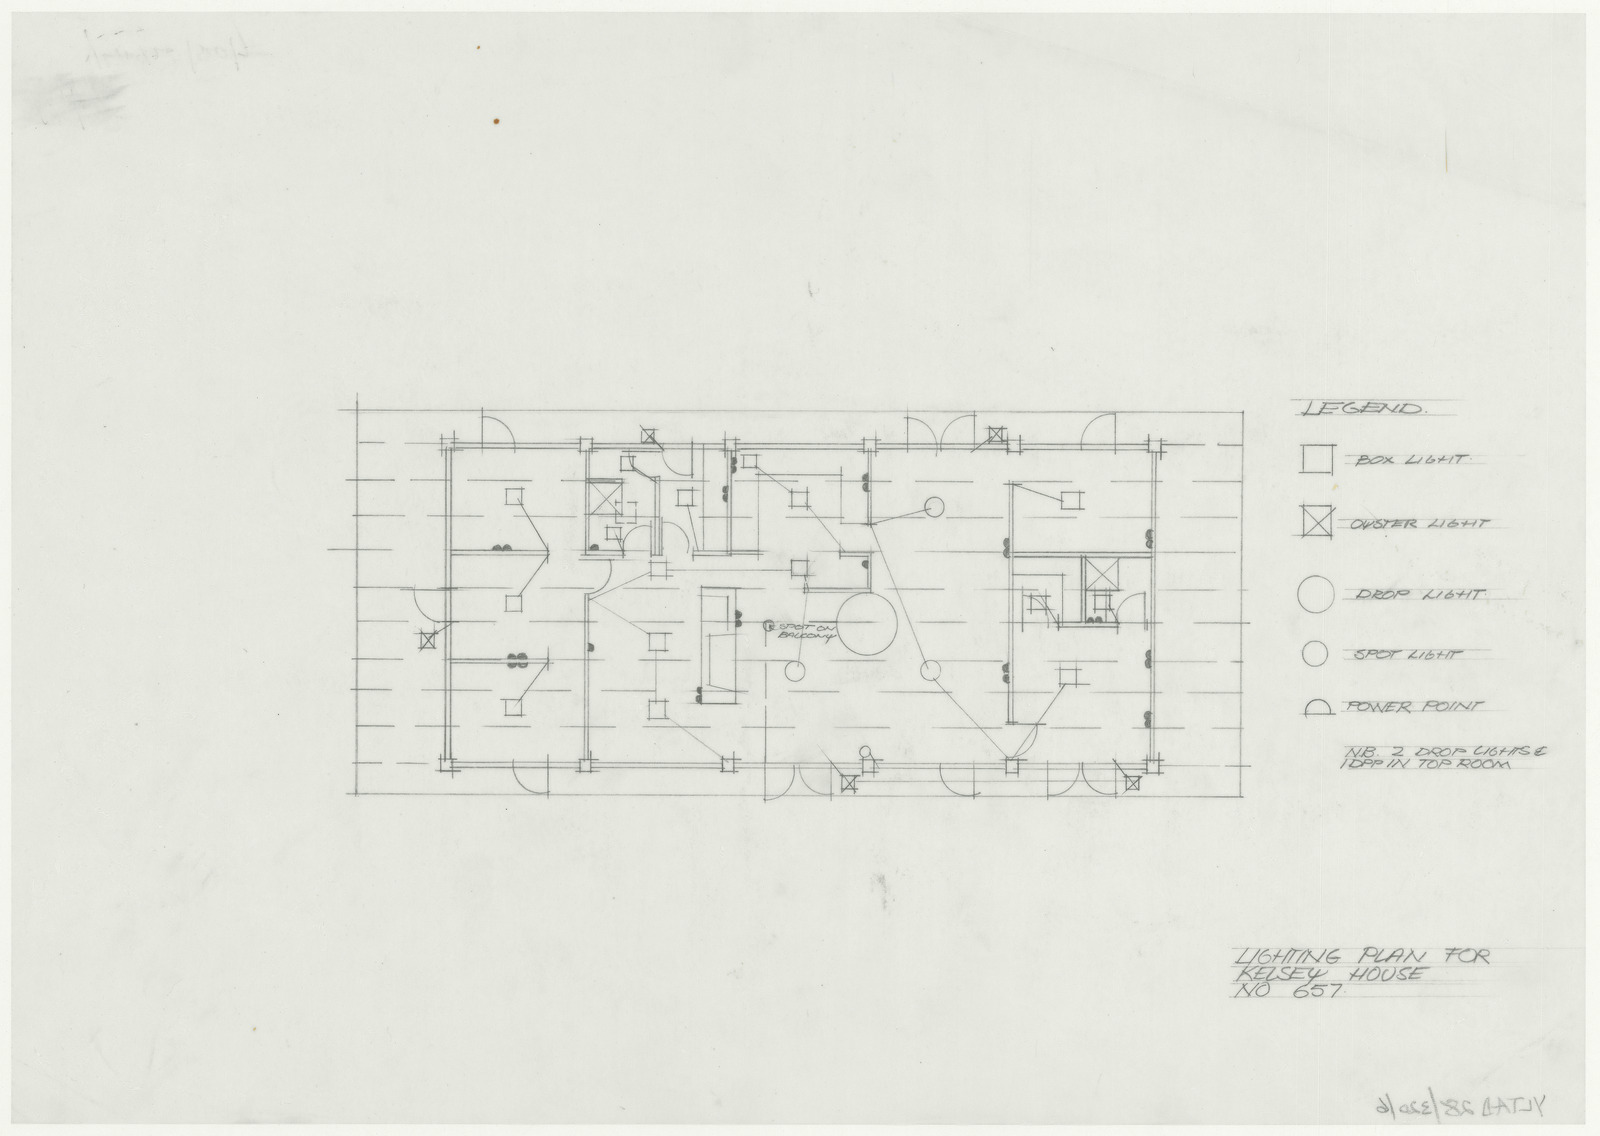 LEGEND.
BOX LIGHT.
OYSTER LIGHT
DROP LIGHT.
SPOT LIGHT
POWER POINT
N.B. 2 DROP LIGHTS &
1 DPP IN TOP ROOM
SPOT ON
BALCONY
LIGHTING PLAN FOR
KELSEY HOUSE
NO 657.
YLTAD 28/320/6